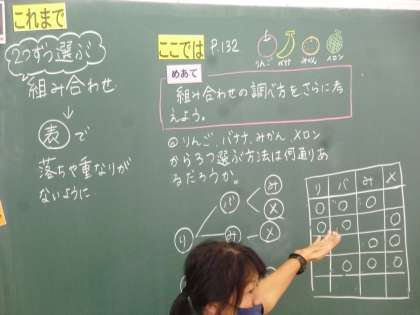 これまで
2つずつ選ぶ
組み合わせ
↓
表で
落ちや重なりが
ないように
ここでは P.132
りんご バナナ みかん メロン
めあて
組み合わせの調べ方をさらに考
えよう。
◎りんご、バナナ、みかん、メロン
から3つ選ぶ方法は何通りあ
るだろうか。
り バ み メ
み メ
み メ
り バ み メ
○ ○ ○
○ ○ ○
○ ○
○ ○ ○